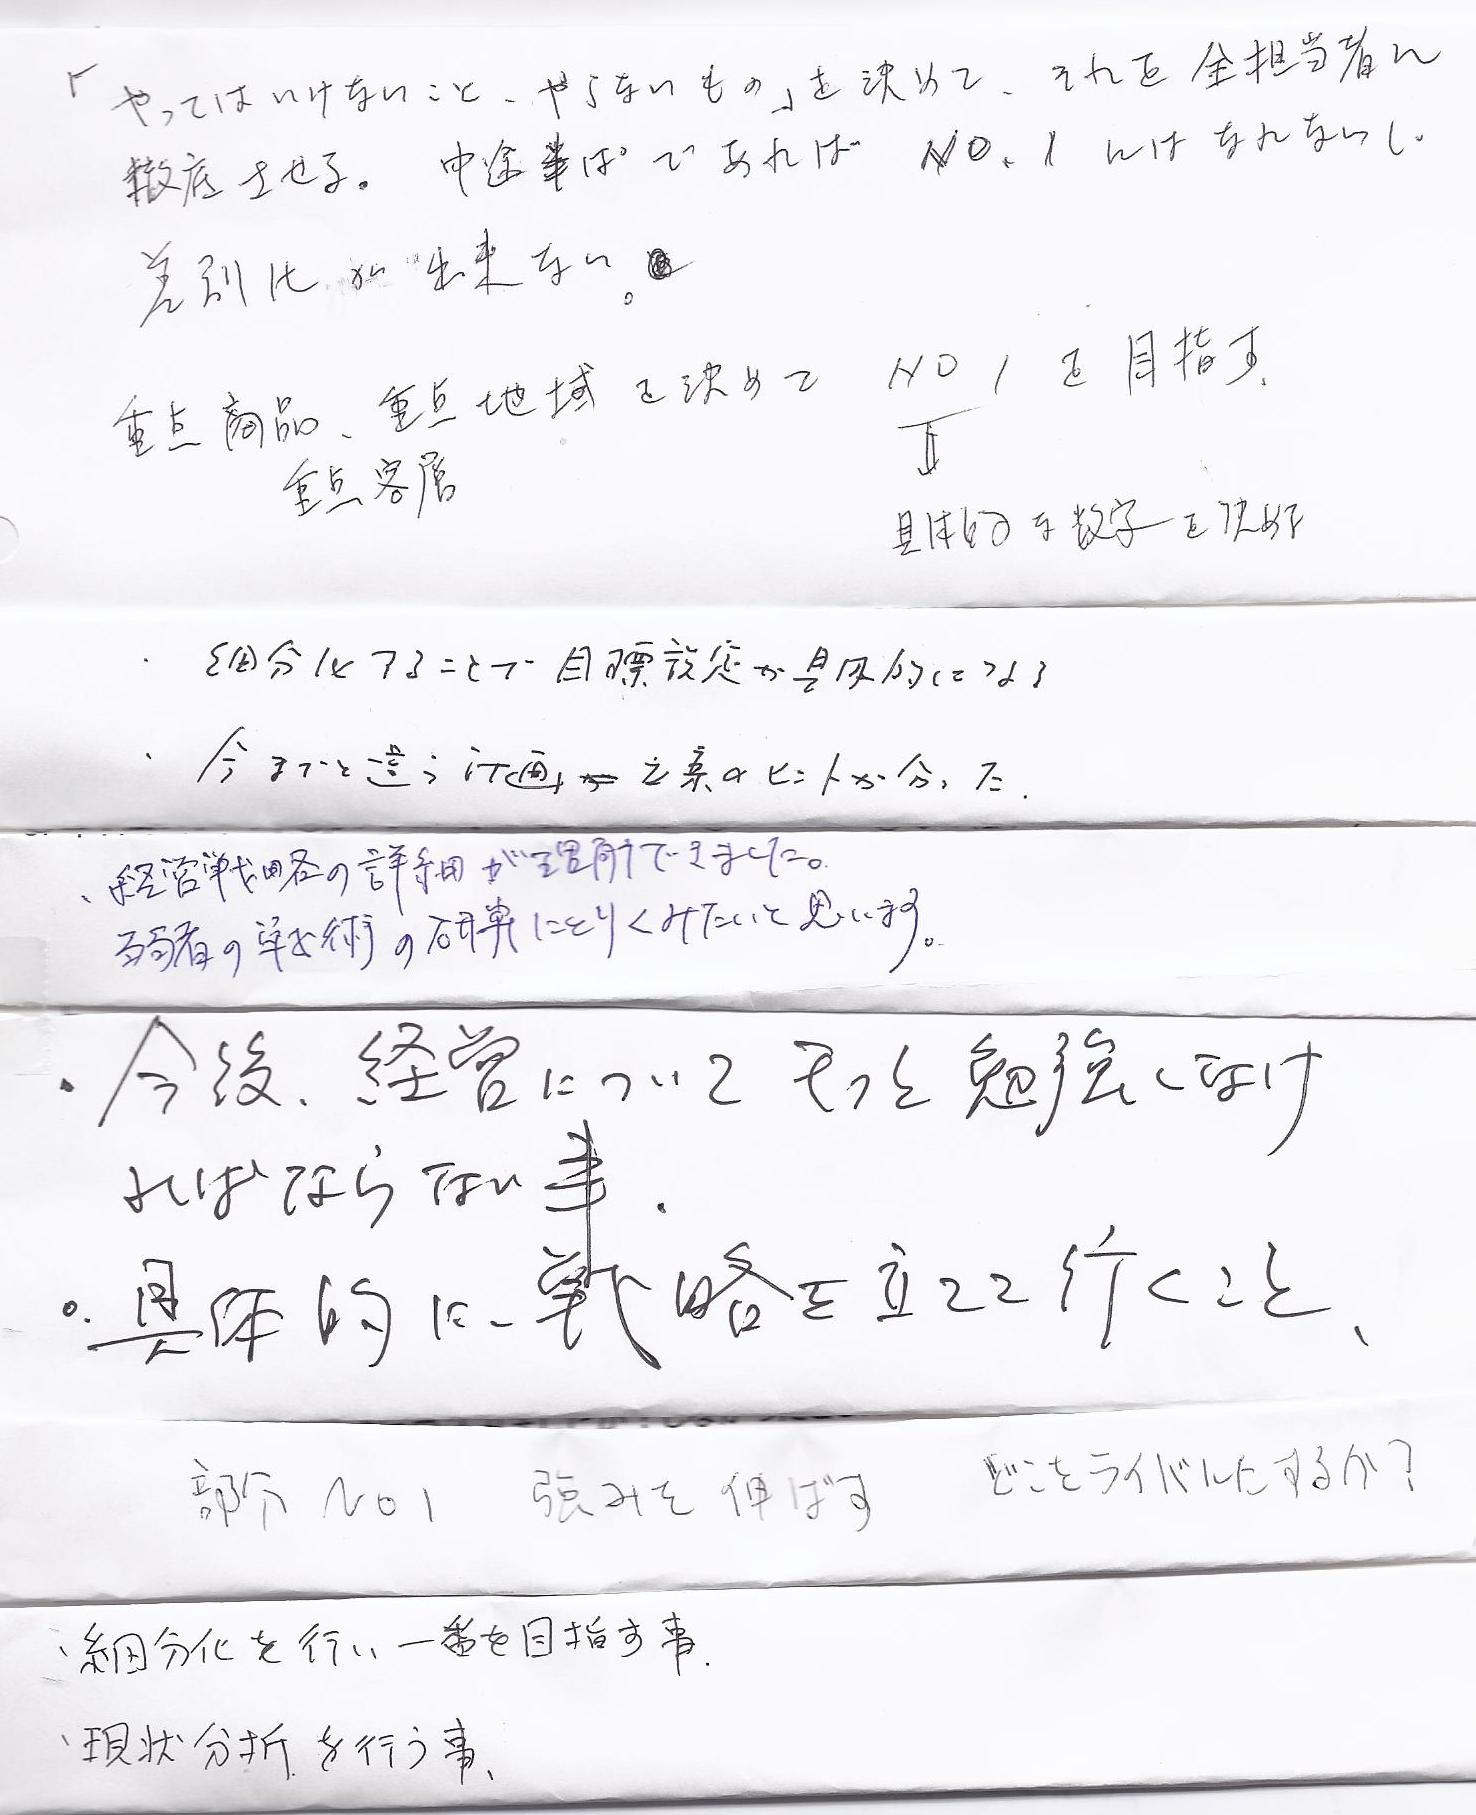 「やってはいけないこと、やらないもの」を決めて、それを全担当者に
徹底させる。中途半ぱであれば NO.1 にはなれないし、
差別化が出来ない。
重点商品、重点地域を決めて NO1を目指す。
重点客層
具体的な数字を決める
・細分化することで目標設定が具体的になる
・今までと違う計画立案のヒントが分った.
・経営戦略の詳細が理解できました。
弱者の戦術の研究にとりくみたいと思います。
・今後、経営についてもっと勉強しなけ
ればならない事.
・具体的に戦略を立てて行くこと、
部分NO1 強みを伸ばす どこをライバルにするか?
・細分化を行い一番を目指す事.
・現状分析を行う事、